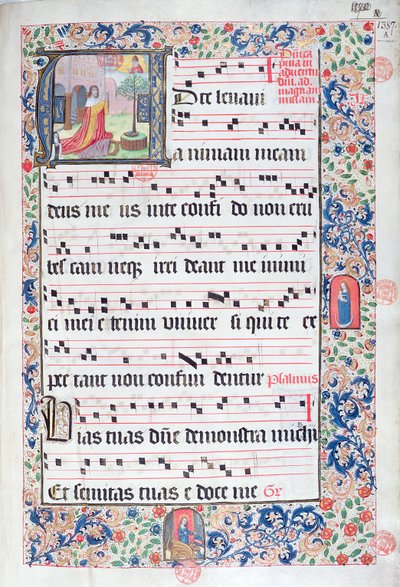 1387
A
Dnica
p͛ma in
aduentu
dñi. ad.
magnam
missam.
Ad te leuaui
a nimam meam
deus me us in te confi do non eru
bes cam neqꝫ irri deant me inimi
ci mei e tenim vniuer si qui te ex
pec tant non confun dentur Psalmus
Vias tuas dñe demonstra michi
Et semitas tuas e doce me Gr